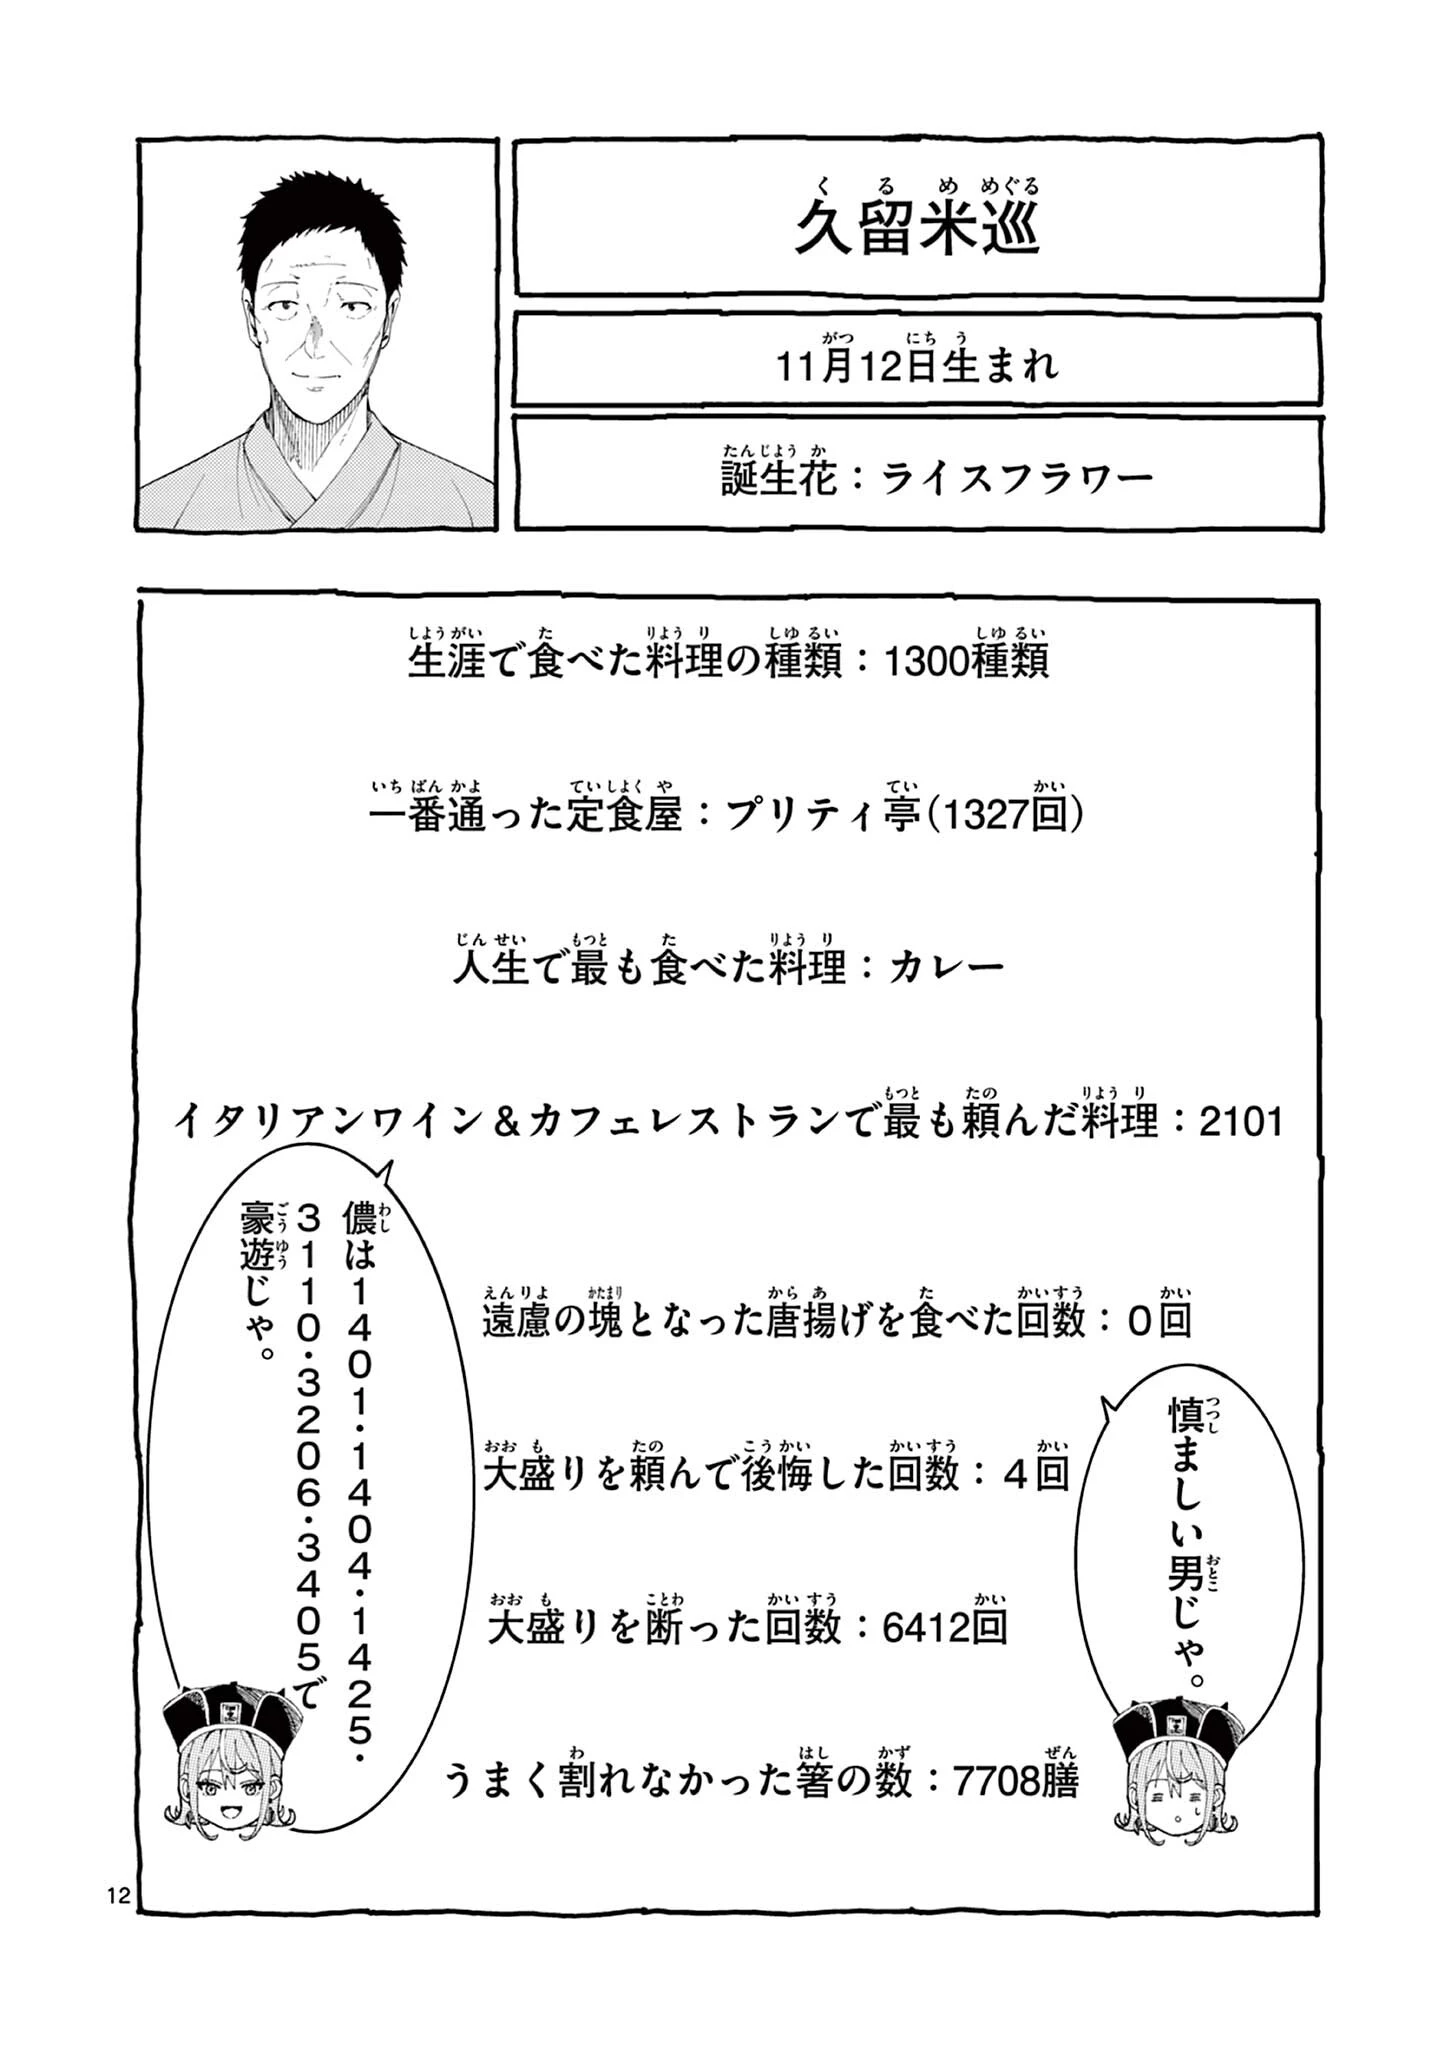 久留米巡
11月12日生まれ
誕生花：ライスフラワー
生涯で食べた料理の種類：1300種類
一番通った定食屋：プリティ亭(1327回)
人生で最も食べた料理：カレー
イタリアンワイン＆カフェレストランで最も頼んだ料理：2101
儂は1401・1404・1425・
3110・3206・3405で
豪遊じゃ。
遠慮の塊となった唐揚げを食べた回数：0回
大盛りを頼んで後悔した回数：4回
大盛りを断った回数：6412回
うまく割れなかった箸の数：7708膳
慎ましい男じゃ。
12